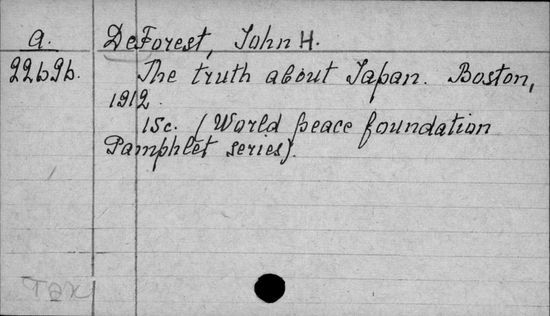 a. DeForest, John H.
22b9b. The truth about Japan. Boston,
1912.
15c. (World peace foundation
Pamphlet series).